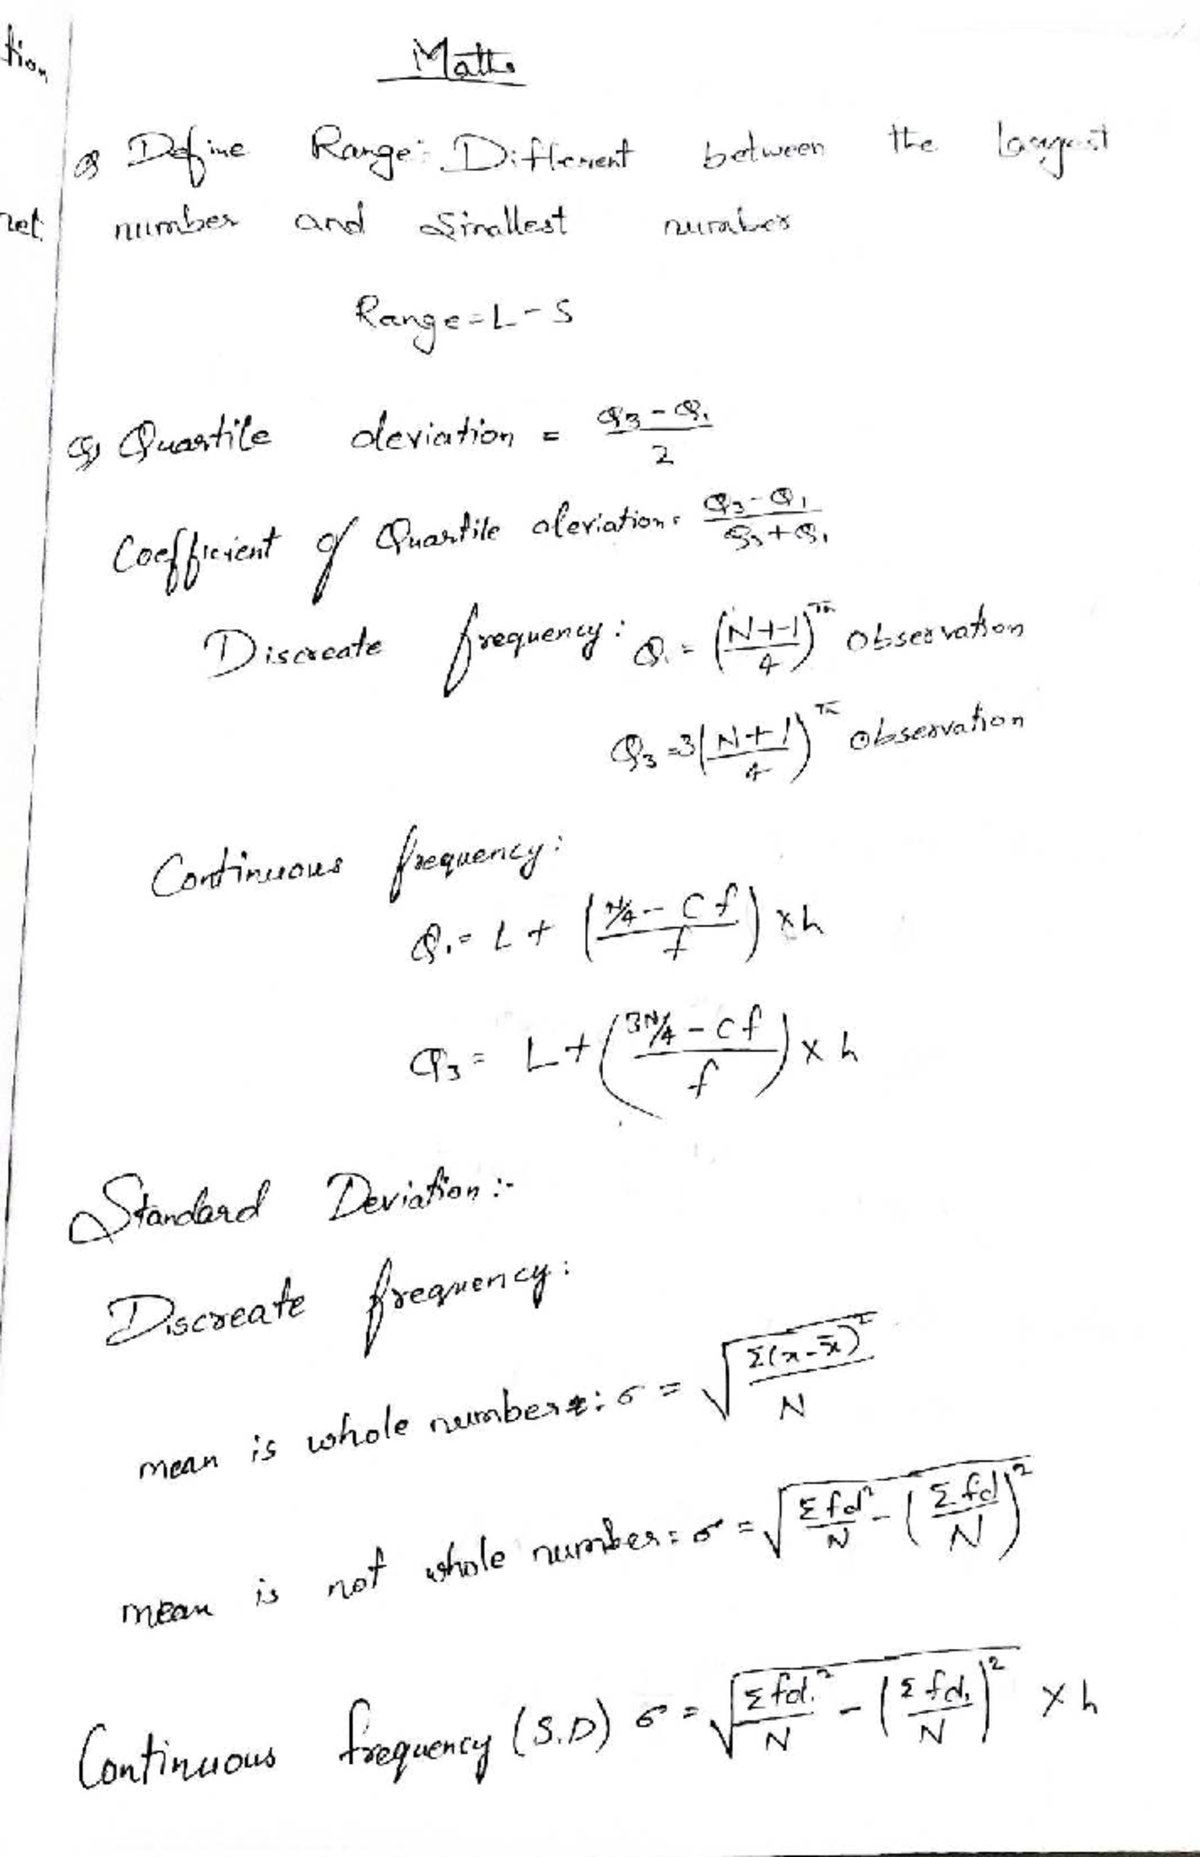 tion
Maths
Q) Define Range: Different between the Largest
ret. number and Smallest number
Range = L - S
Q) Quartile deviation = Q3 - Q1 / 2
Coefficient of Quartile deviation = Q3 - Q1 / Q3 + Q1
Discreate frequency: Q1 = (N+1 / 4)^Th observation
Q3 = 3(N+1 / 4)^Th observation
Continuous frequency:
Q1 = L + (N/4 - Cf / f) × h
Q3 = L + (3N/4 - Cf / f) × h
Standard Deviation :-
Discreate frequency:
mean is whole number: σ = √(Σ(x - x̄)² / N)
mean is not whole number: σ = √(Σfd² / N - (Σfd / N)²)
Continuous frequency (S.D) σ = √(Σfd₁² / N - (Σfd₁ / N)²) × h